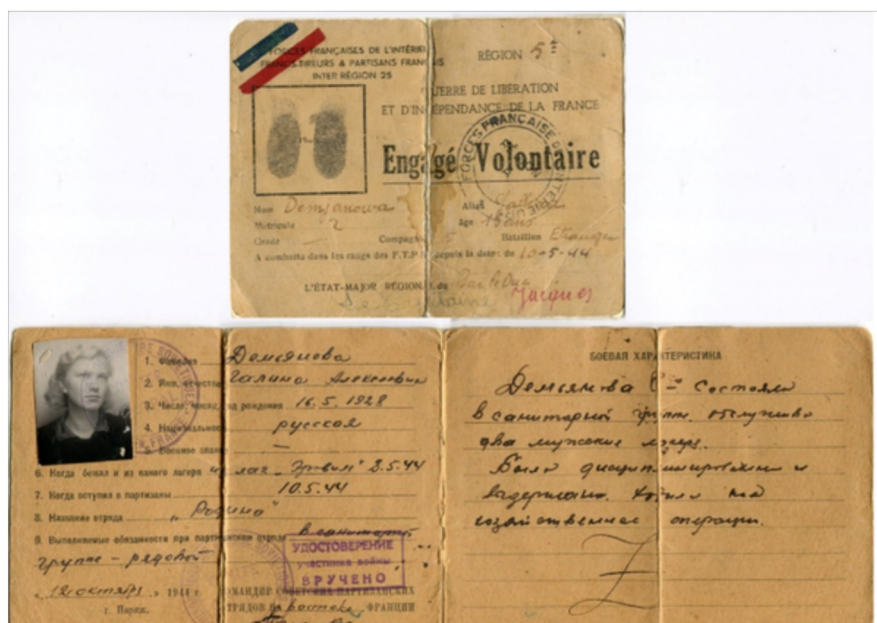 FORCES FRANÇAISES DE L'INTÉRIEUR
FRANCS-TIREURS & PARTISANS FRANÇAIS
INTER RÉGION 25
RÉGION 5
GUERRE DE LIBÉRATION
ET D'INDÉPENDANCE DE LA FRANCE
FORCES FRANÇAISES DE L'INTÉRIEUR
Engagé Volontaire
Nom Demjanowa Alias
Matricule 2 âge 16 ans
Grade — Compagnie 5 Bataillon Etranger
A combattu dans les rangs des F.T.P.F. depuis la date: du 10-5-44
L'ÉTAT-MAJOR RÉGIONAL du
Jacques
1. Фамилия Демьянова
2. Имя, отчество Галина
3. Число, месяц, год рождения 16.5.1928
4. Национальность русская
5. Военное звание —
6. Когда бежал и из какого лагеря из лаг. 8.5.44
7. Когда вступил в партизаны 10.5.44
8. Название отряда „Родина"
9. Выполняемые обязанности при партизанском отряде в санитарной
группе – рядовой
УДОСТОВЕРЕНИЕ
участника войны
ВРУЧЕНО
"12 октября 1944 г.
г. Париж.
КОМАНДИР СОВЕТСКИХ ПАРТИЗАНСКИХ
ОТРЯДОВ НА востоке ФРАНЦИИ
БОЕВАЯ ХАРАКТЕРИСТИКА
Демьянова состояла
в санитарной группе, обслуживала
два мужские лагеря.
Была дисциплинирована и
выдержана. Ходила на
хозяйственные операции.